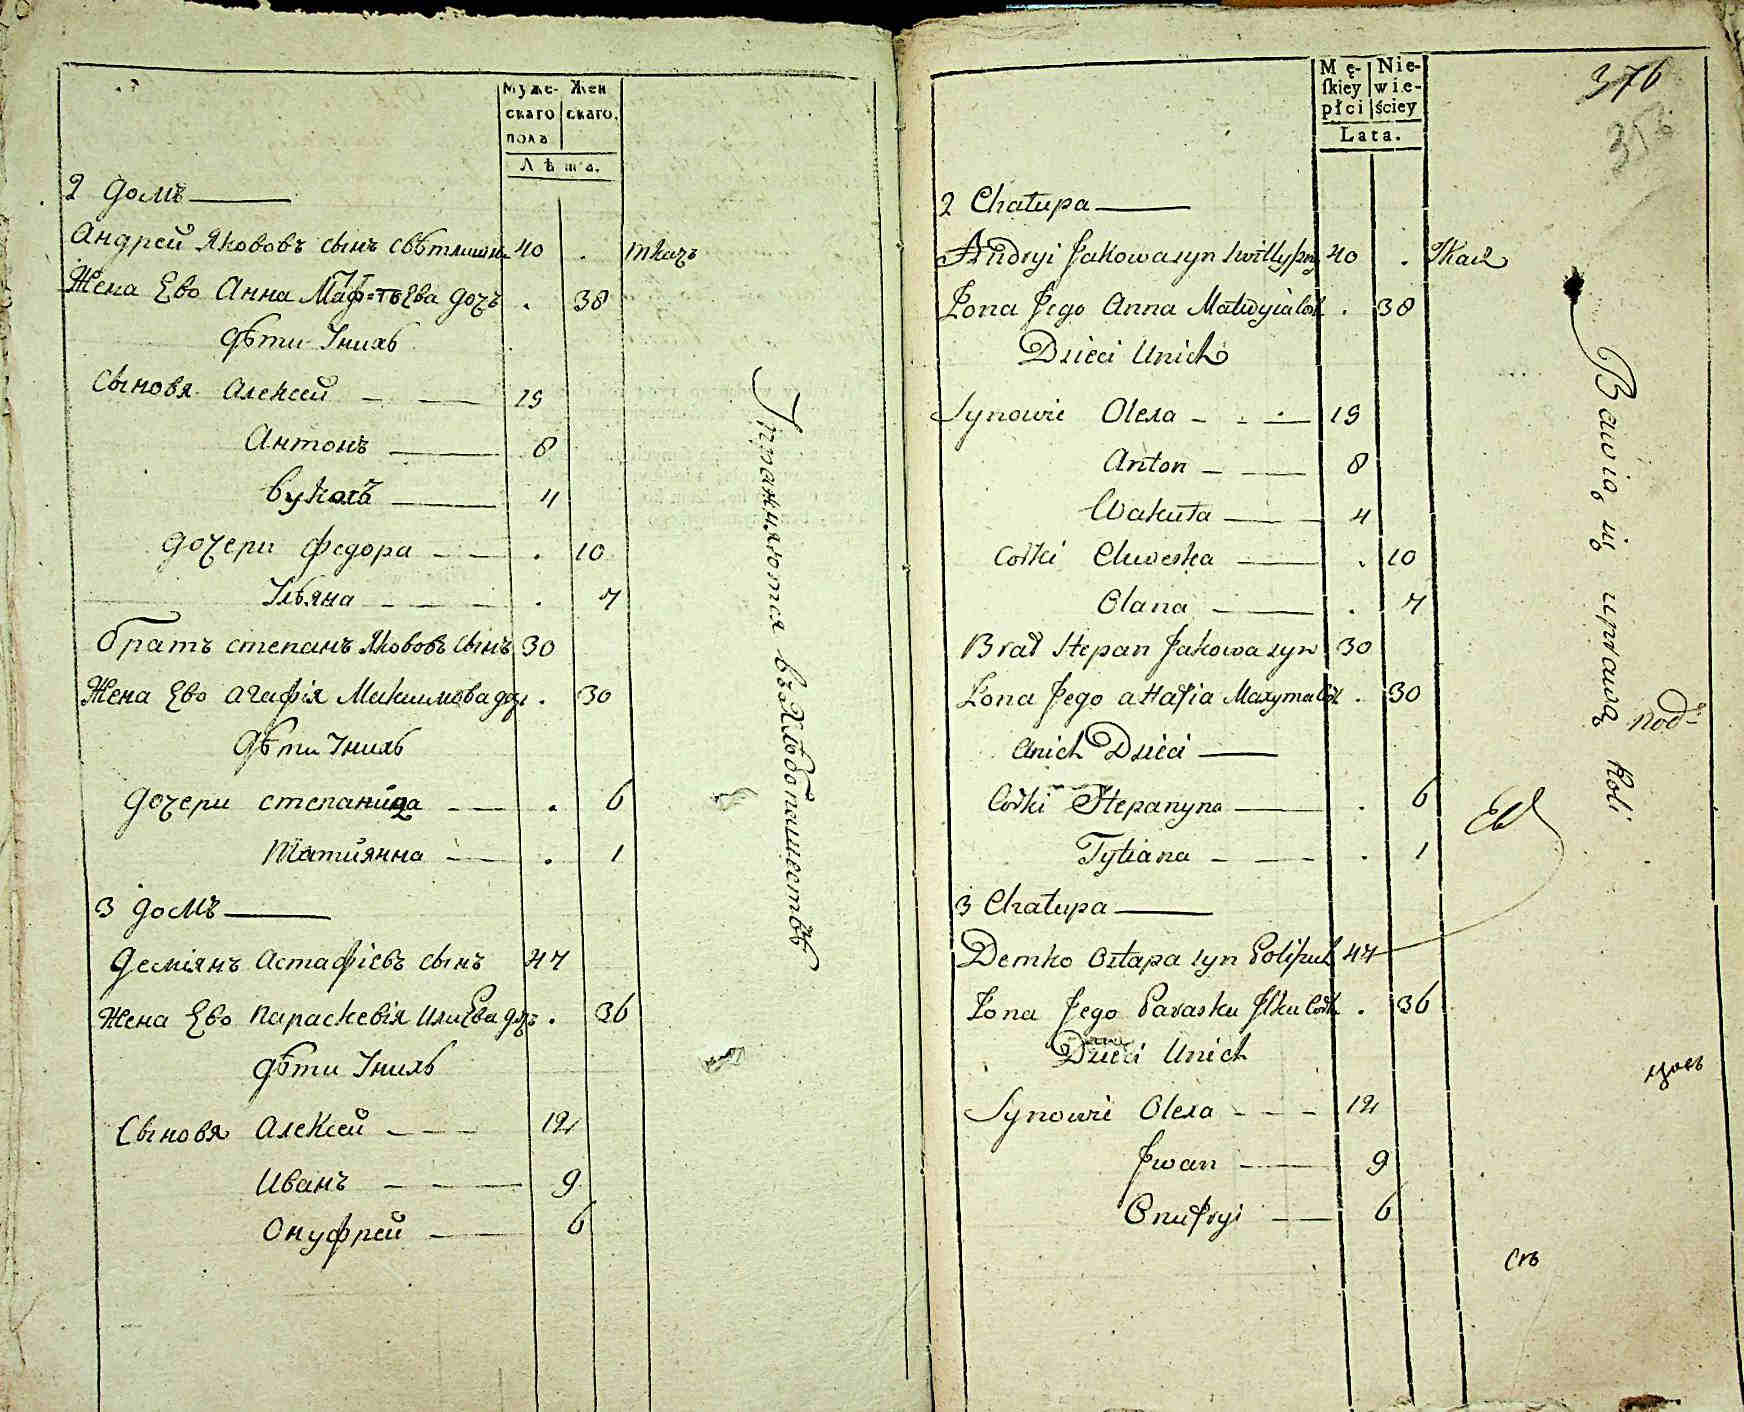 Муже- Жен
скаго скаго.
пола
Лѣта.
2 домъ
Андрей Яковъ сынъ свѣтлишн 40 . ткачъ
Жена Ево Анна Матвѣева дочъ . 38
дѣти Iнихъ
Сыновя Алексей 15
Антонъ 8
Вуколъ 4
дочери Федора . 10
Ульяна . 7
братъ степанъ Яковъ сынъ 30
Жена Ево агафія Максимова дочъ . 30
дѣти Iнихъ
дочери степанида . 6
Татиянна . 1
3 домъ
демиянъ Астафіевъ сынъ 47
Жена Ево параскевія Илиева дочъ . 36
дѣти Iнихъ
Сыновя Алексей 12
Иванъ 9
Онуфрей 6
Упражняются въ хлѣбопашествѣ
Mę- Nie-
skiey wie-
płci ściey
Lata.
376
353
2 Chałupa
Andryi Jakowa syn 40 . Tkacz
Żona Jego Anna Matwyia Cór . 38
Dzieci Unich
Synowie Olexa 15
Anton 8
Wakuła 4
Córki Chweska . 10
Olana . 7
Brat Stepan Jakowa syn 30
Żona Jego aHafia Maxyma Cór . 30
Unich Dzieci
Córki Stepanyna . 6
Tytiana . 1
3 Chałupa
Demko Ostapa syn Polipuk 47
Żona Jego Paraska Ilka Córk . 36
Dzieci Unich
Synowie Olexa 12
Jwan 9
Onufryi 6
Bawią się uprawą Roli